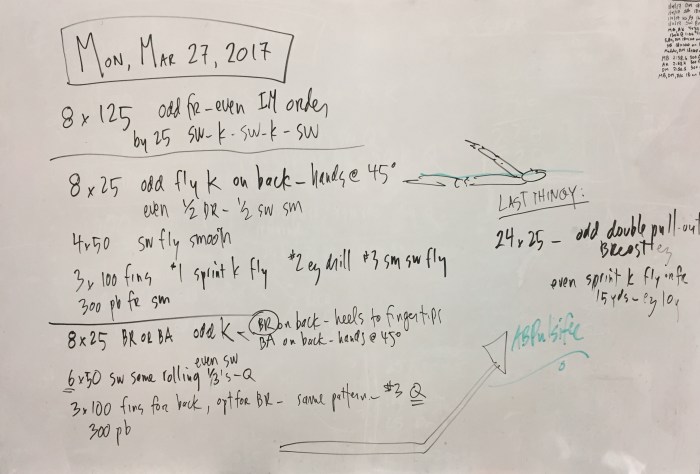 MON, MAR 27, 2017
8 x 125 odd fr - even IM order
by 25 sw - k - sw - k - sw
8 x 25 odd fly k on back - hands @ 45°
even 1/2 DR - 1/2 sw sm
4x50 sw fly smooth
3 x 100 fins #1 sprint k fly #2 ez drill #3 sm sw fly
300 pb fr sm
8 x 25 BR OR BA odd k - BR on back - heels to fingertips
BA on back - hands @ 45°
even sw
6x50 sw some rolling 1/3's - Q
3x100 fins for back, opt for BR - same pattern - #3 Q
300 pb
LAST THINGY:
24 x 25 - odd double pull-out
Breast ez
even sprint k fly in fr
15 yds - ez 10y